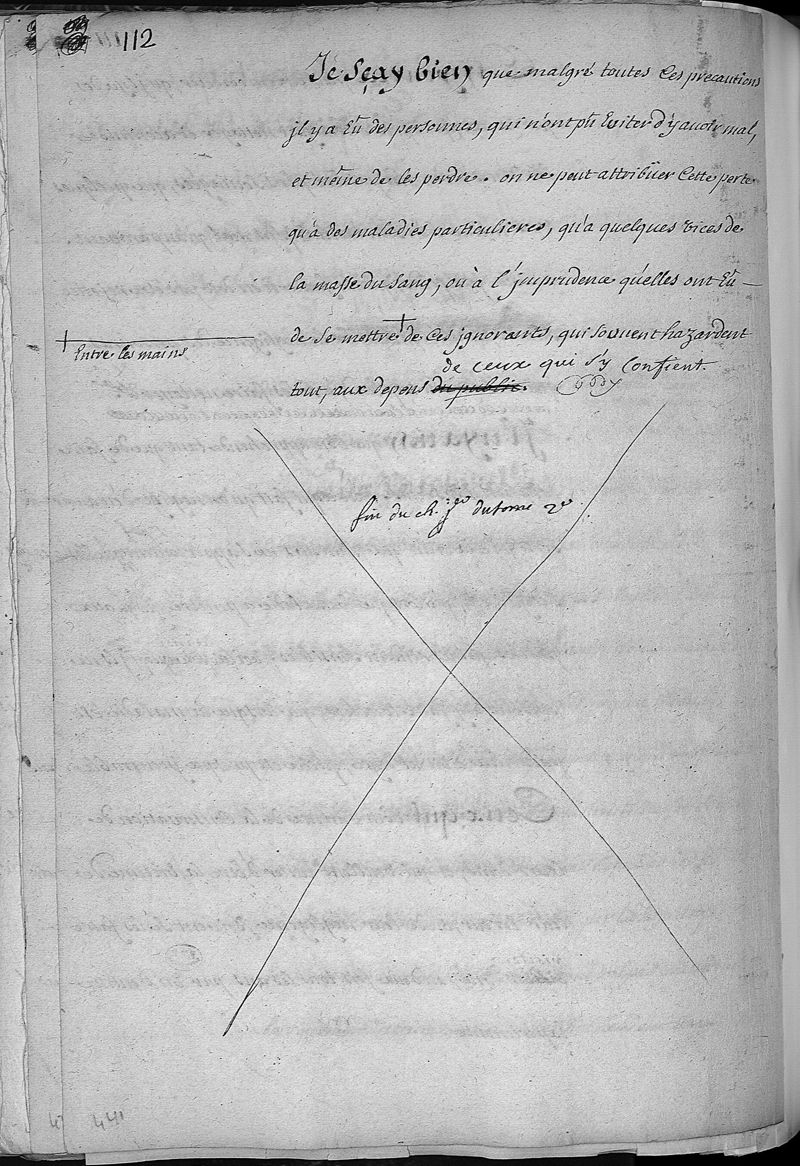 112
Je sçay bien que malgré toutes ces precautions
jl y a Eü des personnes, qui n'ont pû Eviter d'y avoir mal,
et même de les perdre. on ne peut attribüer Cette perte
qu'à des maladies particulieres, qu'a quelques vices de
la masse du sang, ou à l'jmprudence qu'elles ont Eü
de se mettre + de ces jgnorants, qui souvent hazardent
+ Entre les mains
de ceux qui s'y Confient.
tout, aux depens du public.
fin du ch. du tome 2e
441